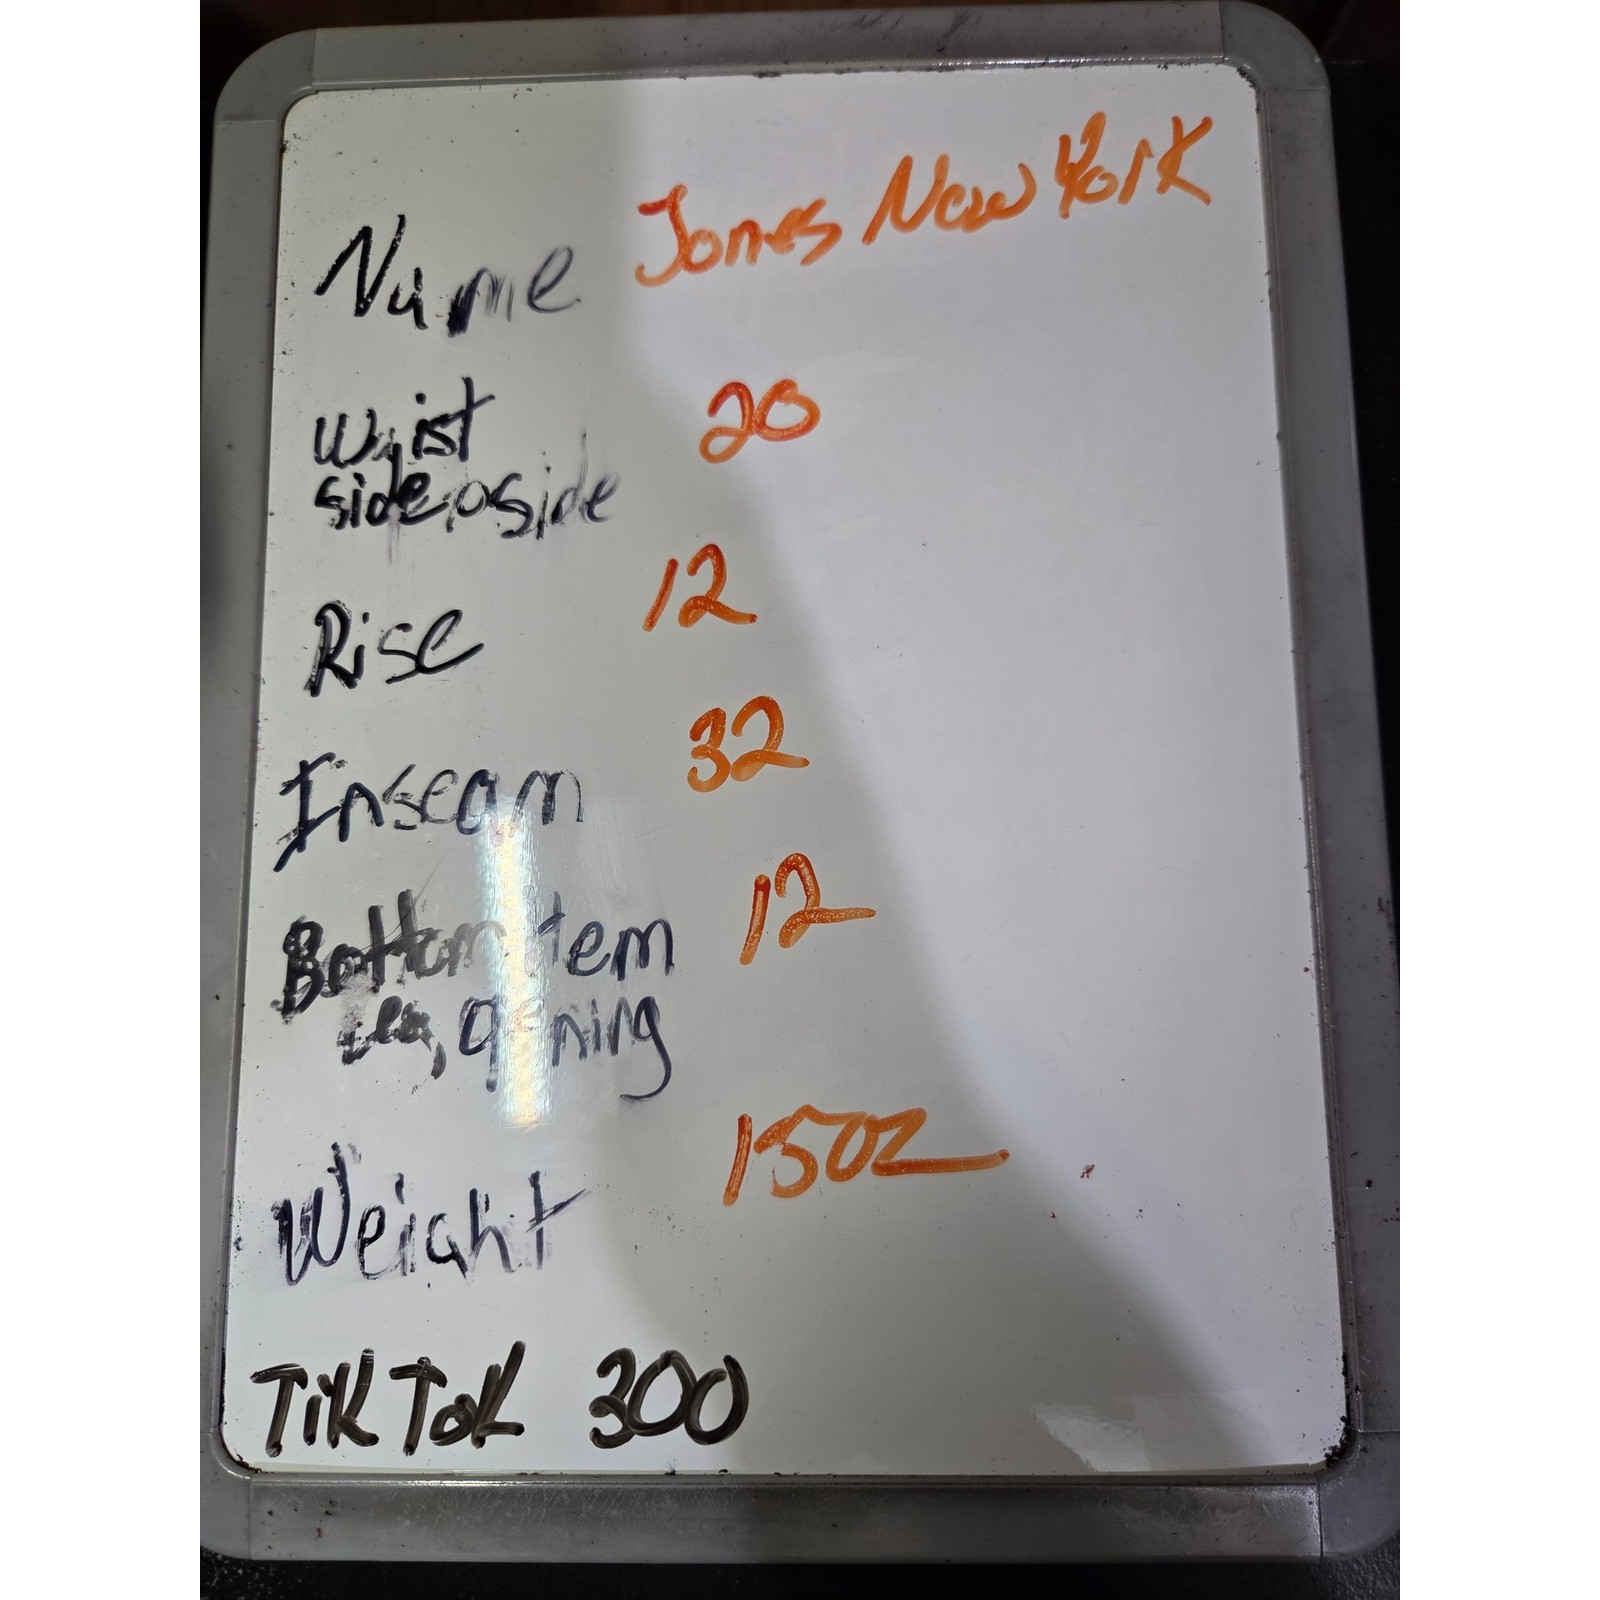 Name Jones New York
Waist 20
side to side
Rise 12
Inseam 32
Bottom Hem 12
Leg opening
Weight 15oz
TikTok 300